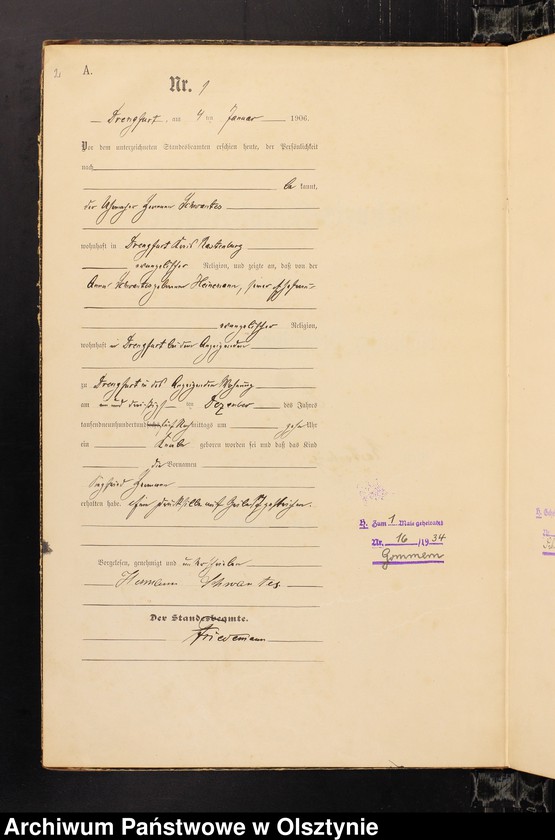 2
A.
Nr. 1
Drengfurt, am 4 ten Januar 1906.
Vor dem unterzeichneten Standesbeamten erschien heute, der Persönlichkeit
nach
be kannt,
der Hermann Schwantes
wohnhaft in Drengfurt Kreis Rastenburg
evangelischer Religion, und zeigte an, daß von der
Anna Schwantes geborenen Heinemann, seiner Ehefrau
evangelischer Religion,
wohnhaft in Drengfurt bei dem Anzeigenden
zu Drengfurt in des Anzeigenden Wohnung
am ein und dreißigsten Dezember des Jahres
tausendneunhundert fünf Nachmittags um zehn Uhr
ein Knabe geboren worden sei und daß das Kind
die Vornamen
Siegfried Hermann
erhalten habe. Eine Druckstelle auf Zeile gestrichen.
Vorgelesen, genehmigt und unterschrieben
Hermann Schwantes.
Der Standesbeamte.
Friedemann
B. Zum 1 Male geheiratet
Nr. 16 /19 34
Gommern
Archiwum Państwowe w Olsztynie